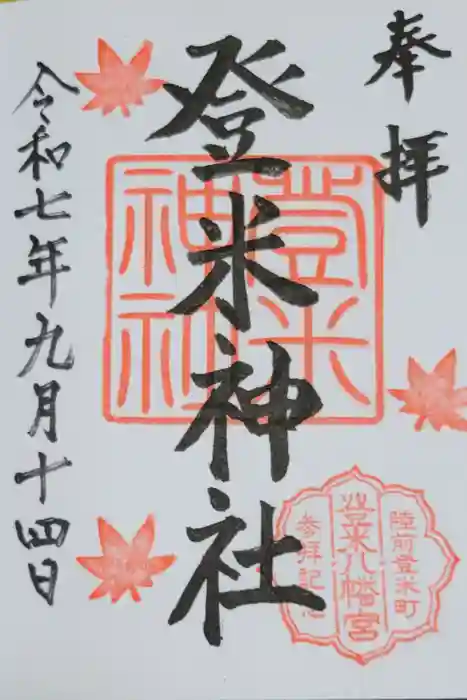 奉拝
登米神社
令和七年九月十四日
登米
神社
陸前登米町
登米八幡宮
参拝記念